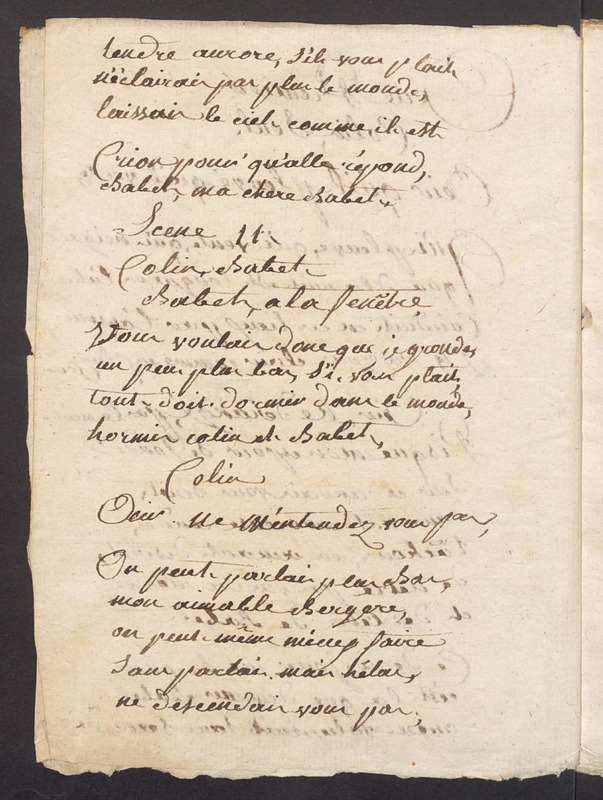 tendre aurore, s'il vous plait
n'éclairai pas plus le monde,
laissair le ciel comme il est
Crion pour qu'alle répond,
Babet, ma chere Babet,
Scene 11
Colin, Babet
Babet, a la fenêtre
Vous voulair donc que je gronde,
un peu plus bas, s'il vous plait,
tout doit dormir dans le monde,
hormis colin et Babet,
Colin
ne m'entendez vous pas,
On peut parlair plus Bas,
mon aimable Bergere,
on peut même mieux faire
sans parlair mais hélas,
ne descendair vous pas,